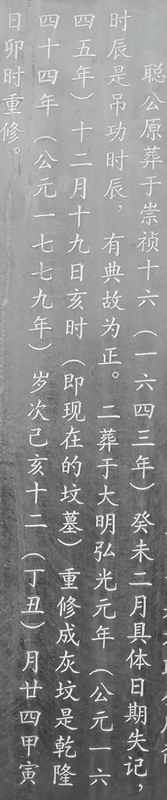 聪公原葬于崇祯十六（一六四三年）癸未二月具体日期失记，
时辰是吊功时辰，有典故为正。二葬于大明弘光元年（公元一六
四五年）十二月十九日亥时（即现在的坟墓）重修成灰坟是乾隆
四十四年（公元一七七九年）岁次己亥十二（丁丑）月廿四甲寅
日卯时重修。